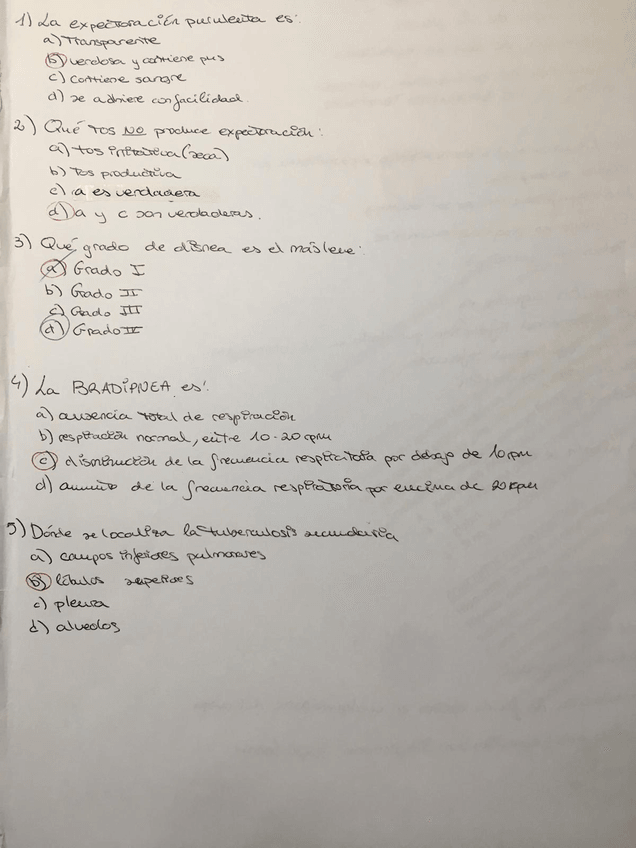 1) La expectoración purulenta es:
a) Transparente
b) verdosa y contiene pus
c) contiene sangre
d) se adhiere con facilidad.
2) Qué TOS NO produce expectoración:
a) tos irritativa (seca)
b) Tos productiva
c) a es verdadera
d) a y c son verdaderas.
3) Qué grado de disnea es el más leve:
a) Grado I
b) Grado II
c) Grado III
d) Grado IV
4) La BRADIPNEA es:
a) ausencia total de respiración
b) respiración normal, entre 10-20 rpm
c) disminución de la frecuencia respiratoria por debajo de 10 rpm
d) aumento de la frecuencia respiratoria por encima de 20 rpm
5) Dónde se localiza la tuberculosis secundaria
a) campos inferiores pulmonares
b) lóbulos superiores
c) pleura
d) alveolos